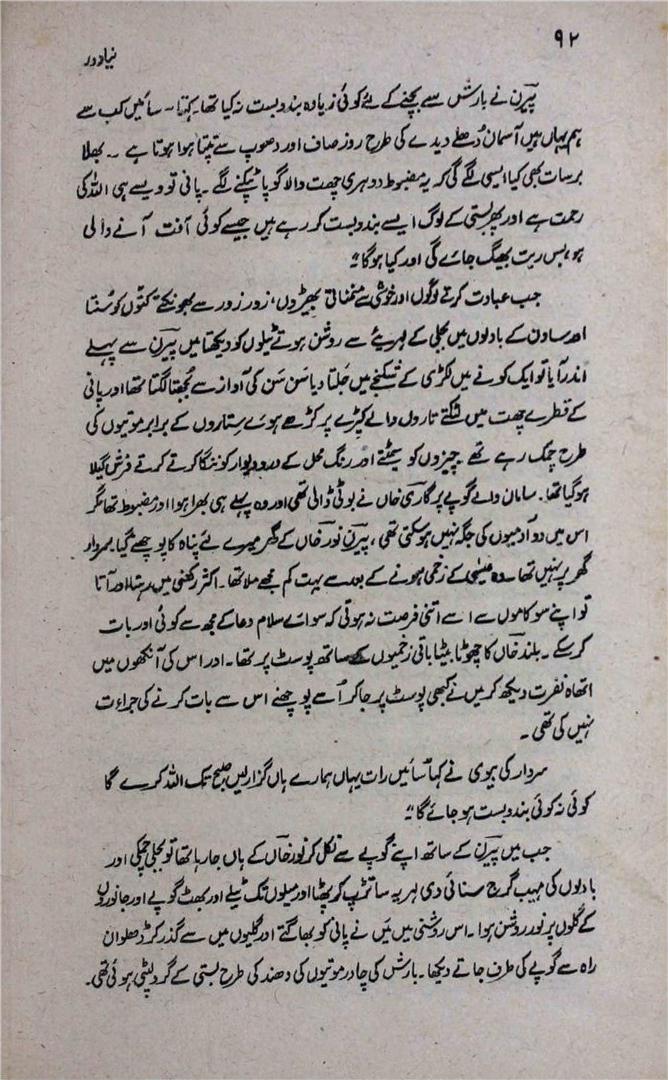 ۹۲
نیا دور
پیرن نے بارش سے بچنے کے لئے کوئی زیادہ بندوبست نہ کیا تھا۔ کہتا۔ سائیں کب سے
ہم یہاں ہیں آسمان دُھلے دیدے کی طرح روز صاف اور دھوپ سے تپتا ہوا ہوتا ہے ۔۔ بھلا
برسات کبھی کیا ایسی لگے گی کہ یہ مضبوط دوہری چھت والا گوپا ٹپکنے لگے ۔ پانی تو ویسے ہی اللہ کی
رحمت ہے اور پھر بستی کے لوگ ایسے بندوبست کر رہے ہیں جیسے کوئی آفت آنے والی
ہو، بس ریت بھیگ جائے گی اور کیا ہوگا"
جب عبادت کرتے لوگوں اور خوشی سے منمناتی بھیڑوں، زور زور سے بھونکتے کتوں کو سُنتا
اور ساون کے بادلوں میں بجلی کے لہریئے سے روشن ہوتے ٹیلوں کو دیکھتا میں پیرن سے پہلے
اندر آیا تو ایک کونے میں لکڑی کے شکنجے میں جلتا دیا سَن سَن کی آواز سے بُجھتا لگتا تھا اور پانی
کے قطرے چھت میں لٹکتے تاروں والے کپڑے پر کڑھے ہوئے ستاروں کے برابر موتیوں کی
طرح چمک رہے تھے ۔ چیزوں کو سمیٹتے اور رنگ محل کے درودیوار کو ننگا کرتے کرتے فرش گیلا
ہو گیا تھا۔ سامان والے گوپے پر گاری خاں نے بوٹی ڈالی تھی اور وہ پہلے ہی بھرا ہوا اور مضبوط تھا مگر
اس میں دو آدمیوں کی جگہ نہیں ہو سکتی تھی ، پیرن نور خاں کے گھر میرے لئے پناہ کا پوچھنے گیا۔ سردار
گھر پر نہیں تھا۔ وہ عیسٰی کے زخمی ہونے کے بعد سے بہت کم مجھے ملا تھا۔ اکثر رکھنی میں رہتا اور آتا
تو اپنے سو کاموں سے اسے اتنی فرصت نہ ہوتی کہ سوائے سلام دعا کے مجھ سے کوئی اور بات
کر سکے ۔ بلند خاں کا چھوٹا بیٹا باقی زخمیوں کے ساتھ پوسٹ پر تھا۔ اور اس کی آنکھوں میں
اتھاہ نفرت دیکھ کر میں نے کبھی پوسٹ پر جا کر اُسے پوچھنے اس سے بات کرنے کی جراءت
نہیں کی تھی ۔
سردار کی بیوی نے کہا "سائیں رات یہاں ہمارے ہاں گزار لیں صبح تک اللہ کرے گا
کوئی نہ کوئی بندوبست ہو جائے گا"
جب میں پیرن کے ساتھ اپنے گوپے سے نکل کر نور خاں کے ہاں جا رہا تھا تو بجلی چمکی اور
بادلوں کی مہیب گرج سنائی دی لہریہ سا تڑپ کر پھٹا اور میلوں تک ٹیلے اور بھٹ گوپے اور جانوروں
کے گلوں پر نور روشن ہوا ۔ اس روشنی میں میں نے پانی کو بھاگتے اور گلیوں میں سے گذر کر ڈھلوان
راہ سے گوپے کی طرف جاتے دیکھا۔ بارش کی چادر موتیوں کی دھند کی طرح بستی کے گرد لپٹی ہوئی تھی۔